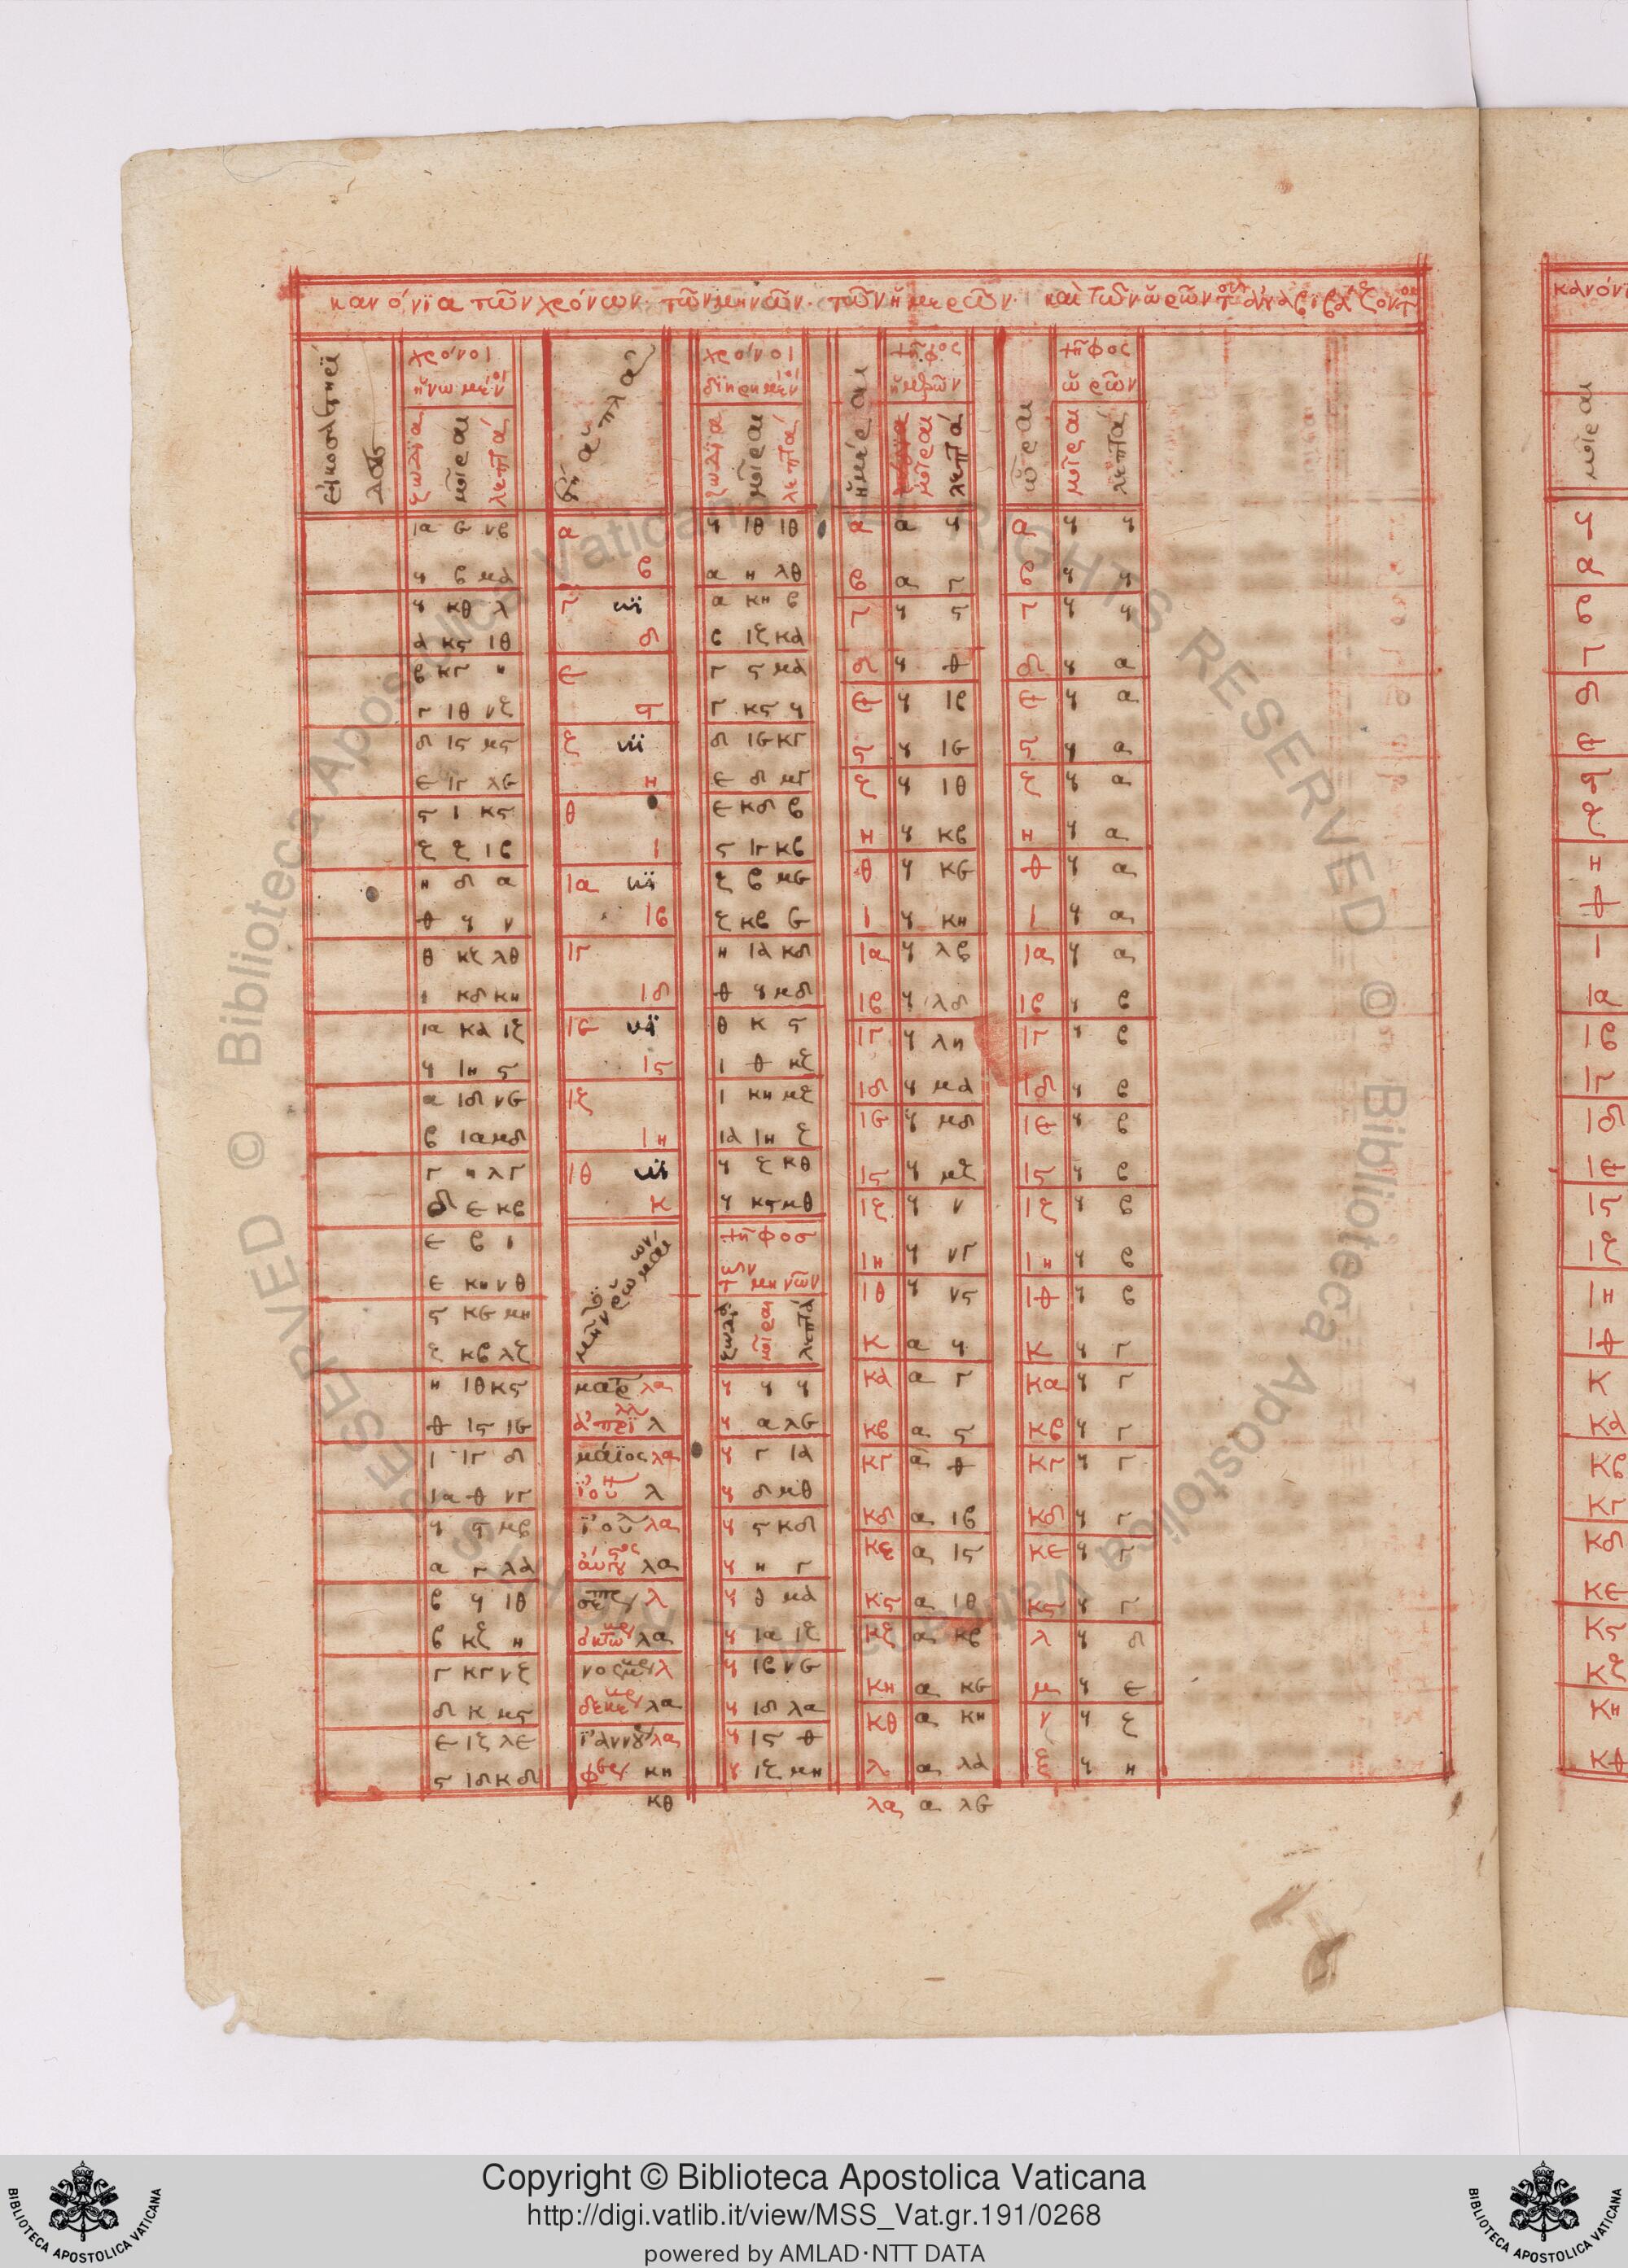 κανόνια τῶν χρόνων· τῶν μηνῶν· τῶν ἡμερῶν· καὶ τῶν ὡρῶν τοῦ ἀναβιβάζοντος
χρόνοι
ἡνωμένοι
ζώδια
μοῖραι
λεπτά
ἁπλᾶ
χρόνοι
διῃρημένοι
ζώδια
μοῖραι
λεπτά
ἡμέραι
ψῆφος
ἡμερῶν
μοῖραι
λεπτά
ὧραι
ψῆφος
ὡρῶν
μοῖραι
λεπτά
ια ε νβ
ϥ β μα
ϥ κθ λ
α κϛ ιθ
β κγ η
γ ιθ νζ
δ ιϛ μϛ
ε ιγ λε
ϛ ι κϛ
ζ ζ ιβ
η δ α
θ ϥ ν
θ κζ λθ
ι κδ κη
ια κα ιζ
ϥ ιη ϛ
α ιδ νε
β ια μδ
γ η λγ
δ ε κβ
ε β ι
ε κη νθ
ϛ κε μη
ζ κβ λζ
η ιθ κϛ
θ ιϛ ιε
ι ιγ δ
ια θ νγ
ϥ ϛ μβ
α γ λα
β ϥ ιθ
β κζ η
γ κγ νζ
δ κ μϛ
ε ιζ λε
ϛ ιδ κδ
α ϥ ιθ ιθ
β α η λθ
γ α κη β
δ β ιζ κα
ε γ ϛ μα
ϛ γ κϛ ϥ
ζ δ ιε κγ
η ε δ μγ
θ ε κδ β
ι ϛ ιγ κβ
ια ζ β με
ιβ ζ κβ ε
ιγ η ια κδ
ιδ θ ϥ μδ
ιε θ κ ϛ
ιϛ ι θ κζ
ιζ ι κη μζ
ιη ια ιη ζ
ιθ ϥ ζ κθ
κ ϥ κϛ μθ
ψῆφος
τῶν μηνῶν
ζώδια
μοῖραι
λεπτά
μαρ λα ϥ ϥ ϥ
ἀπριλλ λ ϥ α λε
μάϊος λα ϥ γ ια
ἰου λ ϥ δ μθ
ἰουλ λα ϥ ϛ κδ
αὐγ λα ϥ η γ
σεπ λ ϥ θ μα
ὀκτω λα ϥ ια ιζ
νο λ ϥ ιβ νε
δεκε λα ϥ ιδ λα
ἰαννου λα ϥ ιϛ θ
φευ κη ϥ ιζ μη
κθ
α α ϥ
β α γ
γ ϥ ϛ
δ ϥ θ
ε ϥ ιβ
ϛ ϥ ιε
ζ ϥ ιθ
η ϥ κβ
θ ϥ κε
ι ϥ κη
ια ϥ λβ
ιβ ϥ λδ
ιγ ϥ λη
ιδ ϥ μα
ιε ϥ μδ
ιϛ ϥ μζ
ιζ ϥ ν
ιη ϥ νγ
ιθ ϥ νϛ
κ α ϥ
κα α γ
κβ α ϛ
κγ α θ
κδ α ιβ
κε α ιϛ
κϛ α ιθ
κζ α κβ
κη α κε
κθ α κη
λ α λα
λα α λε
α ϥ ϥ
β ϥ ϥ
γ ϥ ϥ
δ ϥ α
ε ϥ α
ϛ ϥ α
ζ ϥ α
η ϥ α
θ ϥ α
ι ϥ α
ια ϥ α
ιβ ϥ β
ιγ ϥ β
ιδ ϥ β
ιε ϥ β
ιϛ ϥ β
ιζ ϥ β
ιη ϥ β
ιθ ϥ β
κ ϥ γ
κα ϥ γ
κβ ϥ γ
κγ ϥ γ
κδ ϥ γ
κε ϥ γ
κϛ ϥ γ
λ ϥ δ
μ ϥ ε
ν ϥ ζ
ξ ϥ η
κανόνι
μοῖραι
ϥ
α
β
γ
δ
ε
ϛ
ζ
η
θ
ι
ια
ιβ
ιγ
ιδ
ιε
ιϛ
ιζ
ιη
ιθ
κ
κα
κβ
κγ
κδ
κε
κϛ
κζ
κη
κθ
Copyright © Biblioteca Apostolica Vaticana
http://digi.vatlib.it/view/MSS_Vat.gr.191/0268
powered by AMLAD·NTT DATA
BIBLIOTECA APOSTOLICA VATICANA
BIBLIOTECA APOSTOLICA VATICANA